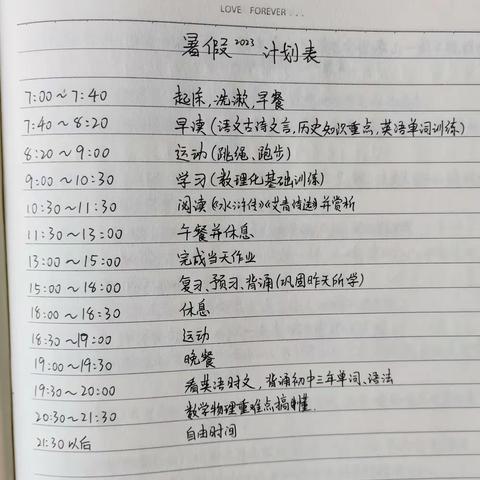 LOVE FOREVER...
暑假 2023 计划表
7:00~7:40 起床,洗漱,早餐
7:40~8:20 早读(语文古诗文言,历史知识重点,英语单词训练)
8:20~9:00 运动(跳绳、跑步)
9:00~10:30 学习(数理化基础训练)
10:30~11:30 阅读《水浒传》《艾青诗选》并赏析
11:30~13:00 午餐并休息
13:00~15:00 完成当天作业
15:00~18:00 复习、预习、背诵(巩固昨天所学)
18:00~18:30 休息
18:30~19:00 运动
19:00~19:30 晚餐
19:30~20:00 看英语时文,背诵初中三年单词、语法
20:30~21:30 数学物理重难点搞懂.
21:30以后 自由时间